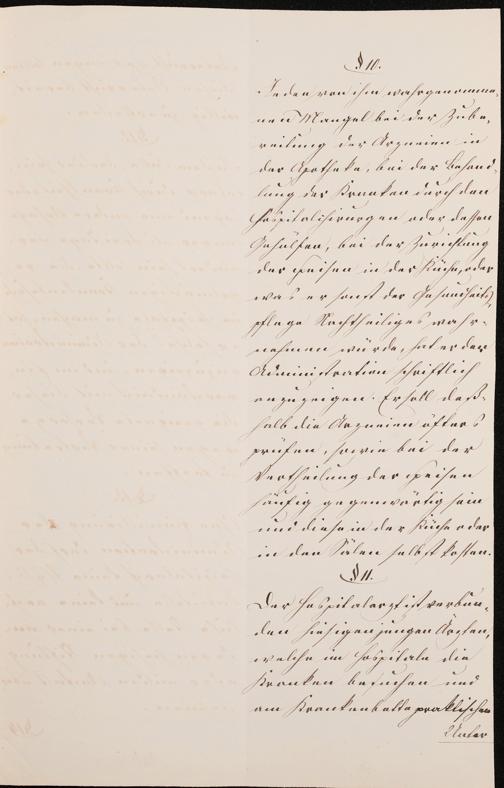 § 10.
Jeden von ihm wahrgenomme-
nen Mangel bei der Zube-
reitung der Arzneien in
der Apotheke, bei der Behand-
lung der Kranken durch den
Hospitalchirurgen oder dessen
Gehülfen, bei der Zurichtung
der Speisen in der Küche, oder
was er sonst der Gesundheits-
pflege Nachtheiliges wahr-
nehmen würde, hat er der
Administration schriftlich
anzuzeigen. Er soll deß-
halb die Arzneien öfters
prüfen, sowie bei der
Vertheilung der Speisen
häufig gegenwärtig sein
und diese in der Küche oder
in den Sälen selbst kosten.
§ 11.
Der Hospitalarzt ist verbun-
den hiesigen jungen Ärzten,
welche im Hospitale die
Kranken besuchen und
am Krankenbette praktischen
Unter